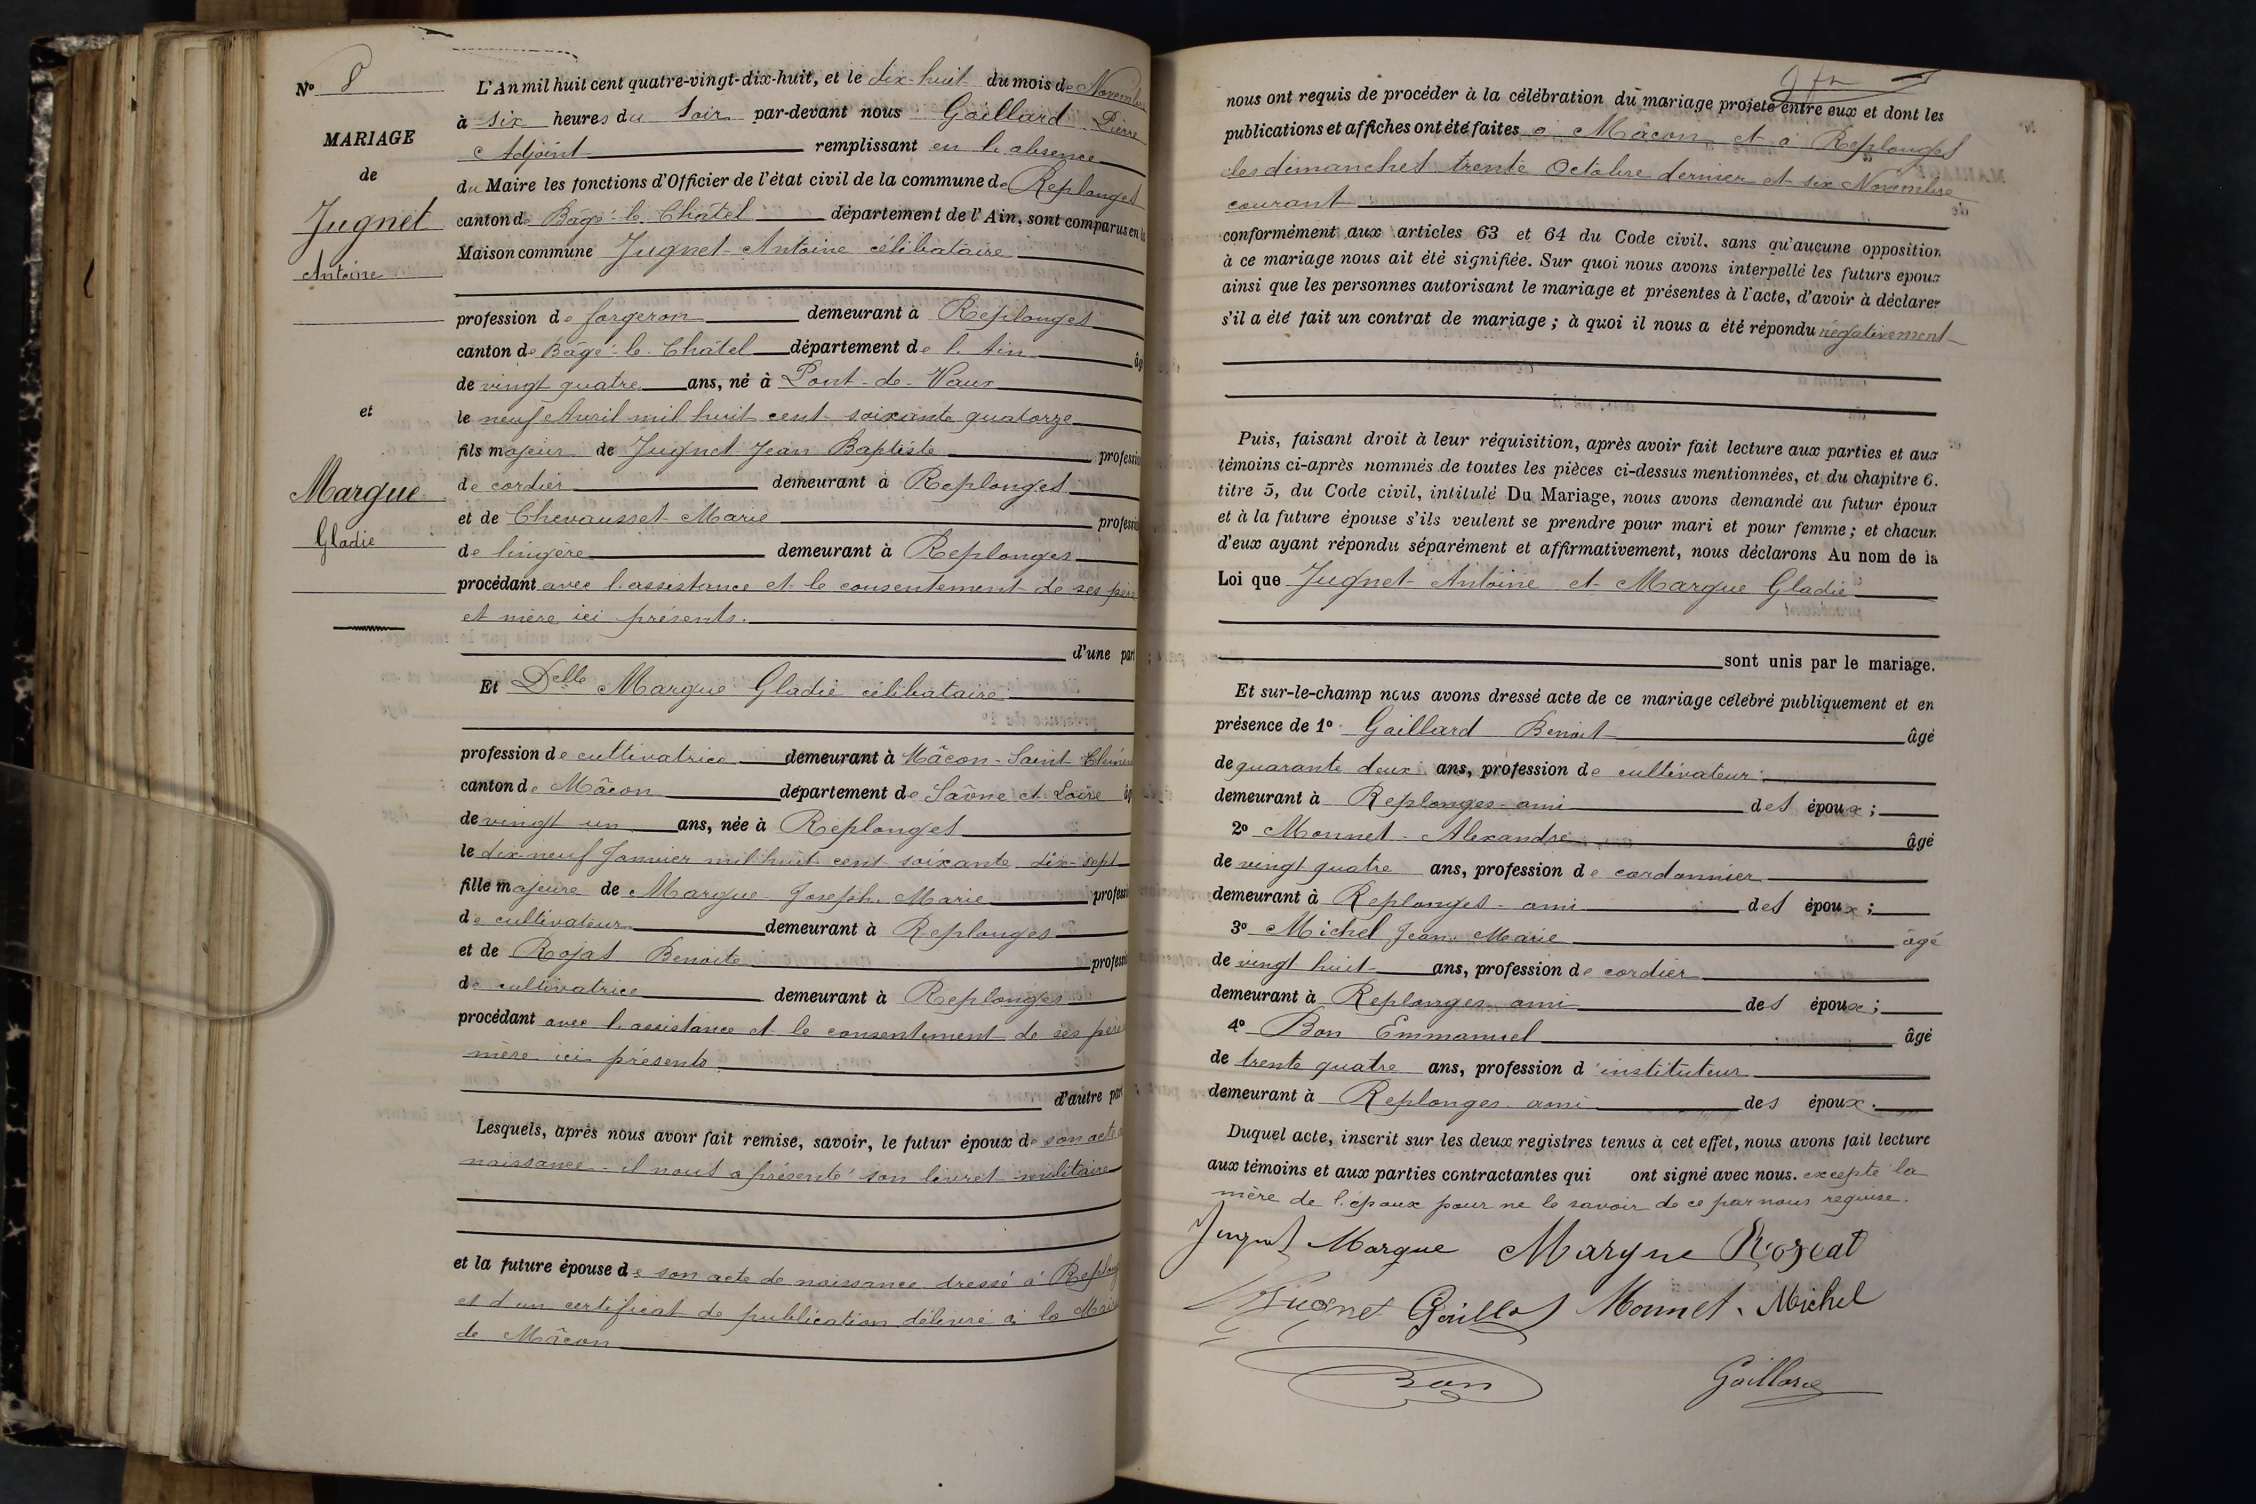 Nº 8
MARIAGE
de
Jugnet
Antoine
et
Margue
Gladie
L'An mil huit cent quatre-vingt-dix-huit, et le dix-huit du mois de Novembre
à six heures du Soir par-devant nous Gaillard Pierre
Adjoint remplissant en l'absence
du Maire les fonctions d'Officier de l'état civil de la commune de Replonges
canton de Bâgé-le-Châtel département de l'Ain, sont comparus en la
Maison commune Jugnet Antoine célibataire
profession de forgeron demeurant à Replonges
canton de Bâgé-le-Châtel département de l'Ain âg
de vingt quatre ans, né à Pont-de-Vaux
le neuf Avril mil huit cent soixante quatorze
fils majeur de Jugnet Jean Baptiste professio
de cordier demeurant à Replonges
et de Chevausset Marie professio
de lingère demeurant à Replonges
procédant avec l'assistance et le consentement de ses père
et mère ici présents.
d'une part
Et Delle Margue Gladie célibataire
profession de cultivatrice demeurant à Mâcon-Saint Clémen
canton de Mâcon département de Saône et Loire âg
de vingt un ans, née à Replonges
le dix-neuf Janvier mil huit cent soixante dix-sept
fille majeure de Margue Joseph Marie professi
de cultivateur demeurant à Replonges
et de Rojat Benoite professi
de cultivatrice demeurant à Replonges
procédant avec l'assistance et le consentement de ses père
mère ici présents
d'autre part
Lesquels, après nous avoir fait remise, savoir, le futur époux de son acte
naissance - il nous a présenté son livret militaire
et la future épouse de son acte de naissance dressé à Replong
et d'un certificat de publication délivré à la Mairi
de Mâcon
nous ont requis de procéder à la célébration du mariage projeté entre eux et dont les
publications et affiches ont été faites à Mâcon et à Replonges
les dimanches trente Octobre dernier et six Novembre
courant
conformément aux articles 63 et 64 du Code civil, sans qu'aucune opposition
à ce mariage nous ait été signifiée. Sur quoi nous avons interpellé les futurs époux
ainsi que les personnes autorisant le mariage et présentes à l'acte, d'avoir à déclarer
s'il a été fait un contrat de mariage ; à quoi il nous a été répondu négativement
Puis, faisant droit à leur réquisition, après avoir fait lecture aux parties et aux
témoins ci-après nommés de toutes les pièces ci-dessus mentionnées, et du chapitre 6.
titre 5, du Code civil, intitulé Du Mariage, nous avons demandé au futur époux
et à la future épouse s'ils veulent se prendre pour mari et pour femme ; et chacun
d'eux ayant répondu séparément et affirmativement, nous déclarons Au nom de la
Loi que Jugnet Antoine et Margue Gladie
sont unis par le mariage.
Et sur-le-champ nous avons dressé acte de ce mariage célébré publiquement et en
présence de 1º Gaillard Benoit âgé
de quarante deux ans, profession de cultivateur
demeurant à Replonges ami des époux ;
2º Monnet Alexandre âgé
de vingt quatre ans, profession de cordonnier
demeurant à Replonges - ami des époux ;
3º Michel Jean Marie âgé
de vingt huit ans, profession de cordier
demeurant à Replonges ami des époux ;
4º Bon Emmanuel âgé
de trente quatre ans, profession d'instituteur
demeurant à Replonges ami des époux.
Duquel acte, inscrit sur les deux registres tenus à cet effet, nous avons fait lecture
aux témoins et aux parties contractantes qui ont signé avec nous. excepté la
mère de l'époux pour ne le savoir de ce par nous requise.
Jugnet Margue Margue Rojat
Jugnet Monnet Michel
Bon Gaillard